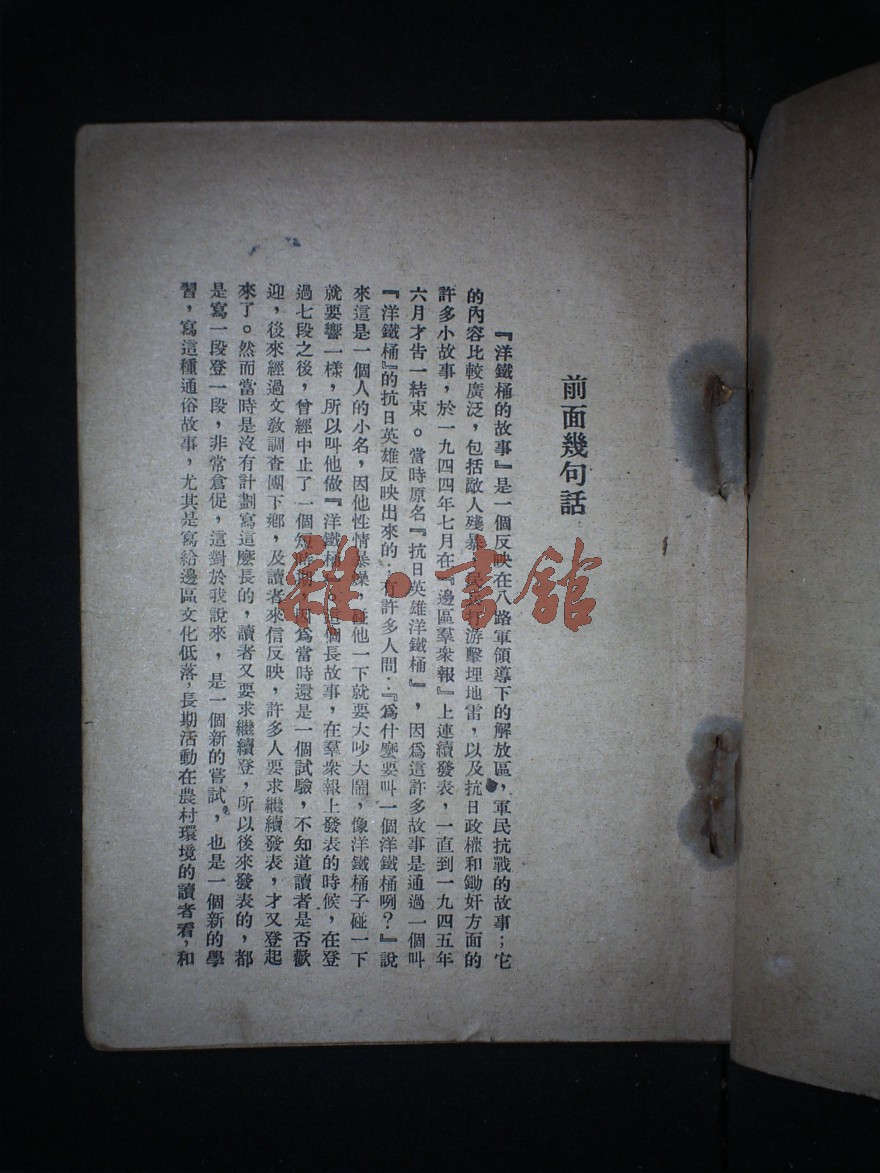 前面幾句話
『洋鐵桶的故事』是一個反映在八路軍領導下的解放區，軍民抗戰的故事；它
的內容比較廣泛，包括敵人殘暴，民兵打游擊埋地雷，以及抗日政權和鋤奸方面的
許多小故事，於一九四四年七月在『邊區羣衆報』上連續發表，一直到一九四五年
六月才告一結束。當時原名『抗日英雄洋鐵桶』，因爲這許多故事是通過一個叫
『洋鐵桶』的抗日英雄反映出來的，有許多人問：『爲什麼要叫一個洋鐵桶咧？』說
來這是一個人的小名，因他性情暴燥，碰他一下就要大吵大鬧，像洋鐵桶子碰一下
就要響一樣，所以叫他做『洋鐵桶』。這個長故事，在羣衆報上發表的時候，在登
過七段之後，曾經中止了一個短時期，因爲當時還是一個試驗，不知道讀者是否歡
迎，後來經過文教調查團下鄉，及讀者來信反映，許多人要求繼續發表，才又登起
來了。然而當時是沒有計劃寫這麼長的，讀者又要求繼續登，所以後來發表的，都
是寫一段登一段，非常倉促，這對於我說來，是一個新的嘗試，也是一個新的學
習，寫這種通俗故事，尤其是寫給邊區文化低落，長期活動在農村環境的讀者看，和
雜·書館